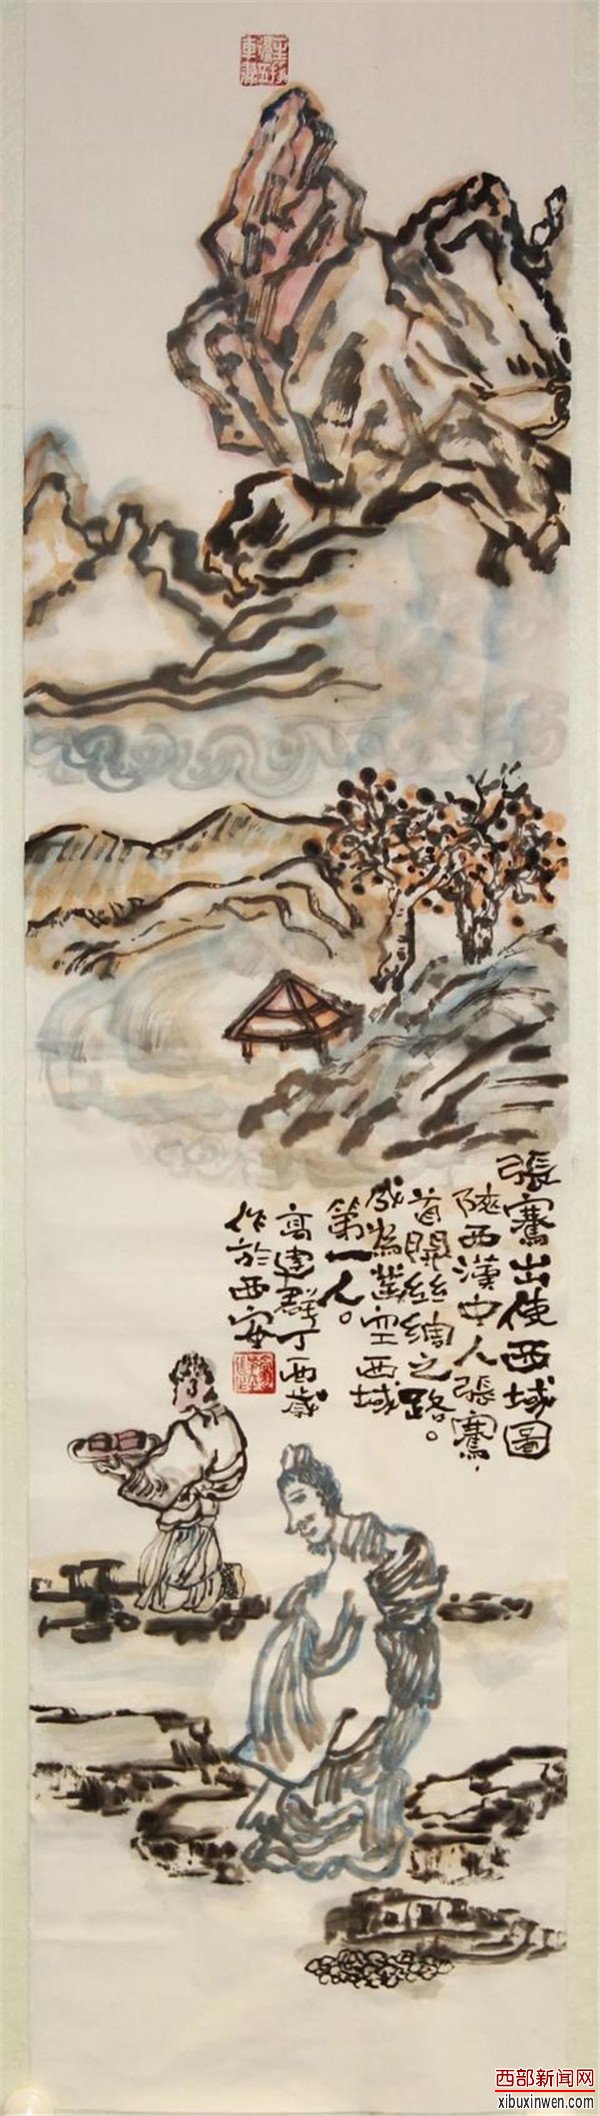 張騫出使西域圖
陝西漢中人張騫，
首開絲綢之路。
成為鑿空西域
第一人。
高建群丁酉歲
作於西安
西部新闻网
xibuxinwen.com